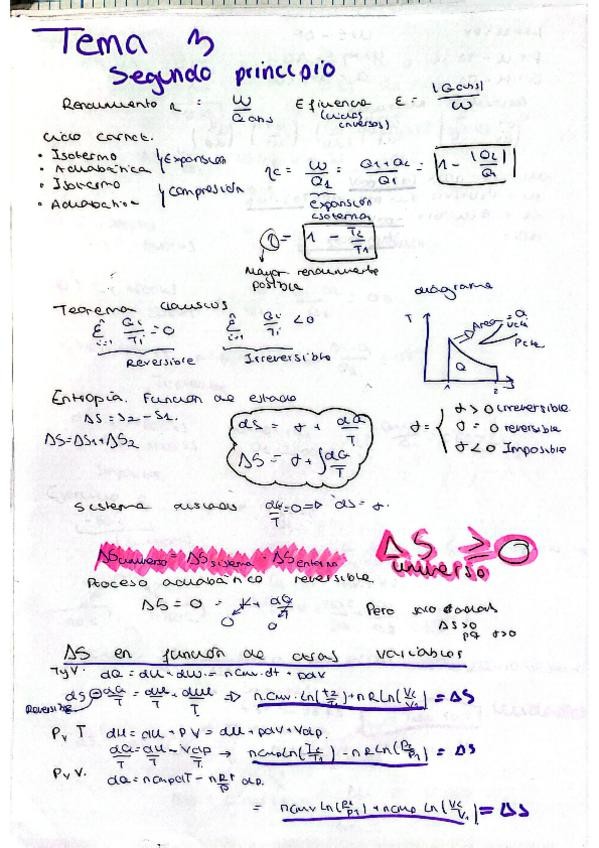 Tema 3
Segundo principio
Rendimiento η = W/Qabs Eficiencia (ciclos inversos) ε = |Qabs|/W
Ciclo Carnot.
• Isotermo
• Adiabática } Expansión
• Isotermo
• Adiabatica } compresión
ηc = W/Q1 = Q1+Q2/Q1 = 1 - |Q2|/Q1
expansión isoterma
η = 1 - T2/T1
Mayor rendimiento posible
Teorema Clausius
Σ i=1 Qi/Ti = 0 Σ i=1 Qi/Ti < 0
Reversible Irreversible
diagrama
T
Area = Q
Q
1 2 S
Entropía. Función de estado
ΔS = S2 - S1.
ΔS = ΔS1 + ΔS2
dS = σ + dQ/T
ΔS = σ + ∫dQ/T
σ = { σ > 0 irreversible
σ = 0 reversible
σ < 0 Imposible
Sistema aislado dQ/T = 0 => dS = σ.
ΔS universo = ΔS sistema + ΔS entorno
ΔS universo ≥ 0
Proceso adiabático reversible
ΔS = 0 = σ + dQ/T
0 0
Pero solo
ΔS>0
pq σ>0
ΔS en función de otras variables
T y V. dQ = dU + dW = nCmv·dt + pdV
dS = dQ/T = dU/T + dW/T => nCmv·Ln(T2/T1) + nRLn(V2/V1) = ΔS
Reversible
P y T
dQ/T = dH/T - Vdp/T → nCmpLn(T2/T1) - nRLn(P2/P1) = ΔS
P y V.
dQ = nCmpdT - nRT/P dp.
= nCmv Ln(P2/P1) + nCmp Ln(V2/V1) = ΔS